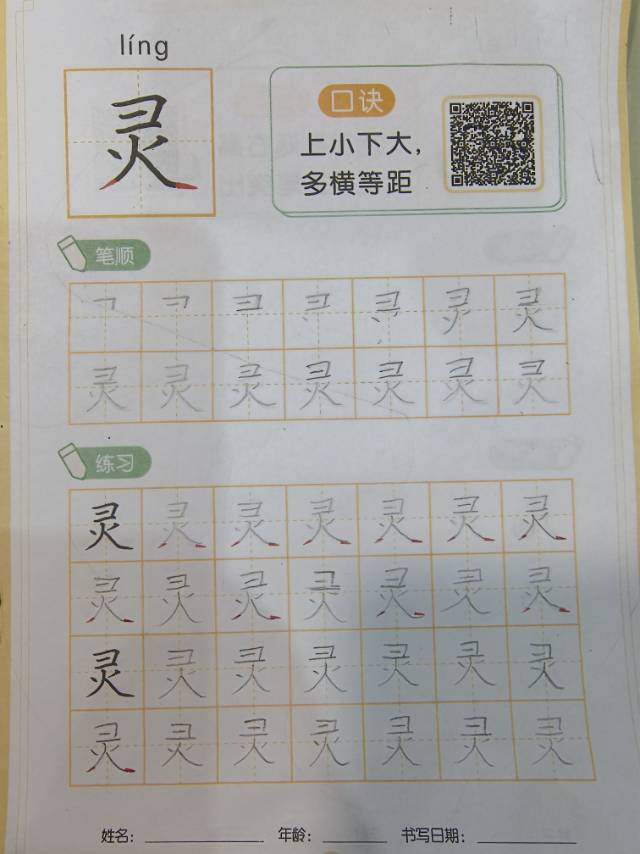 líng
灵
口诀
上小下大，
多横等距
笔顺
灵
灵 灵 灵 灵 灵 灵 灵
练习
灵 灵 灵 灵 灵 灵 灵
灵 灵 灵 灵 灵 灵 灵
灵 灵 灵 灵 灵 灵 灵
灵 灵 灵 灵 灵 灵 灵
姓名： 年龄： 书写日期：